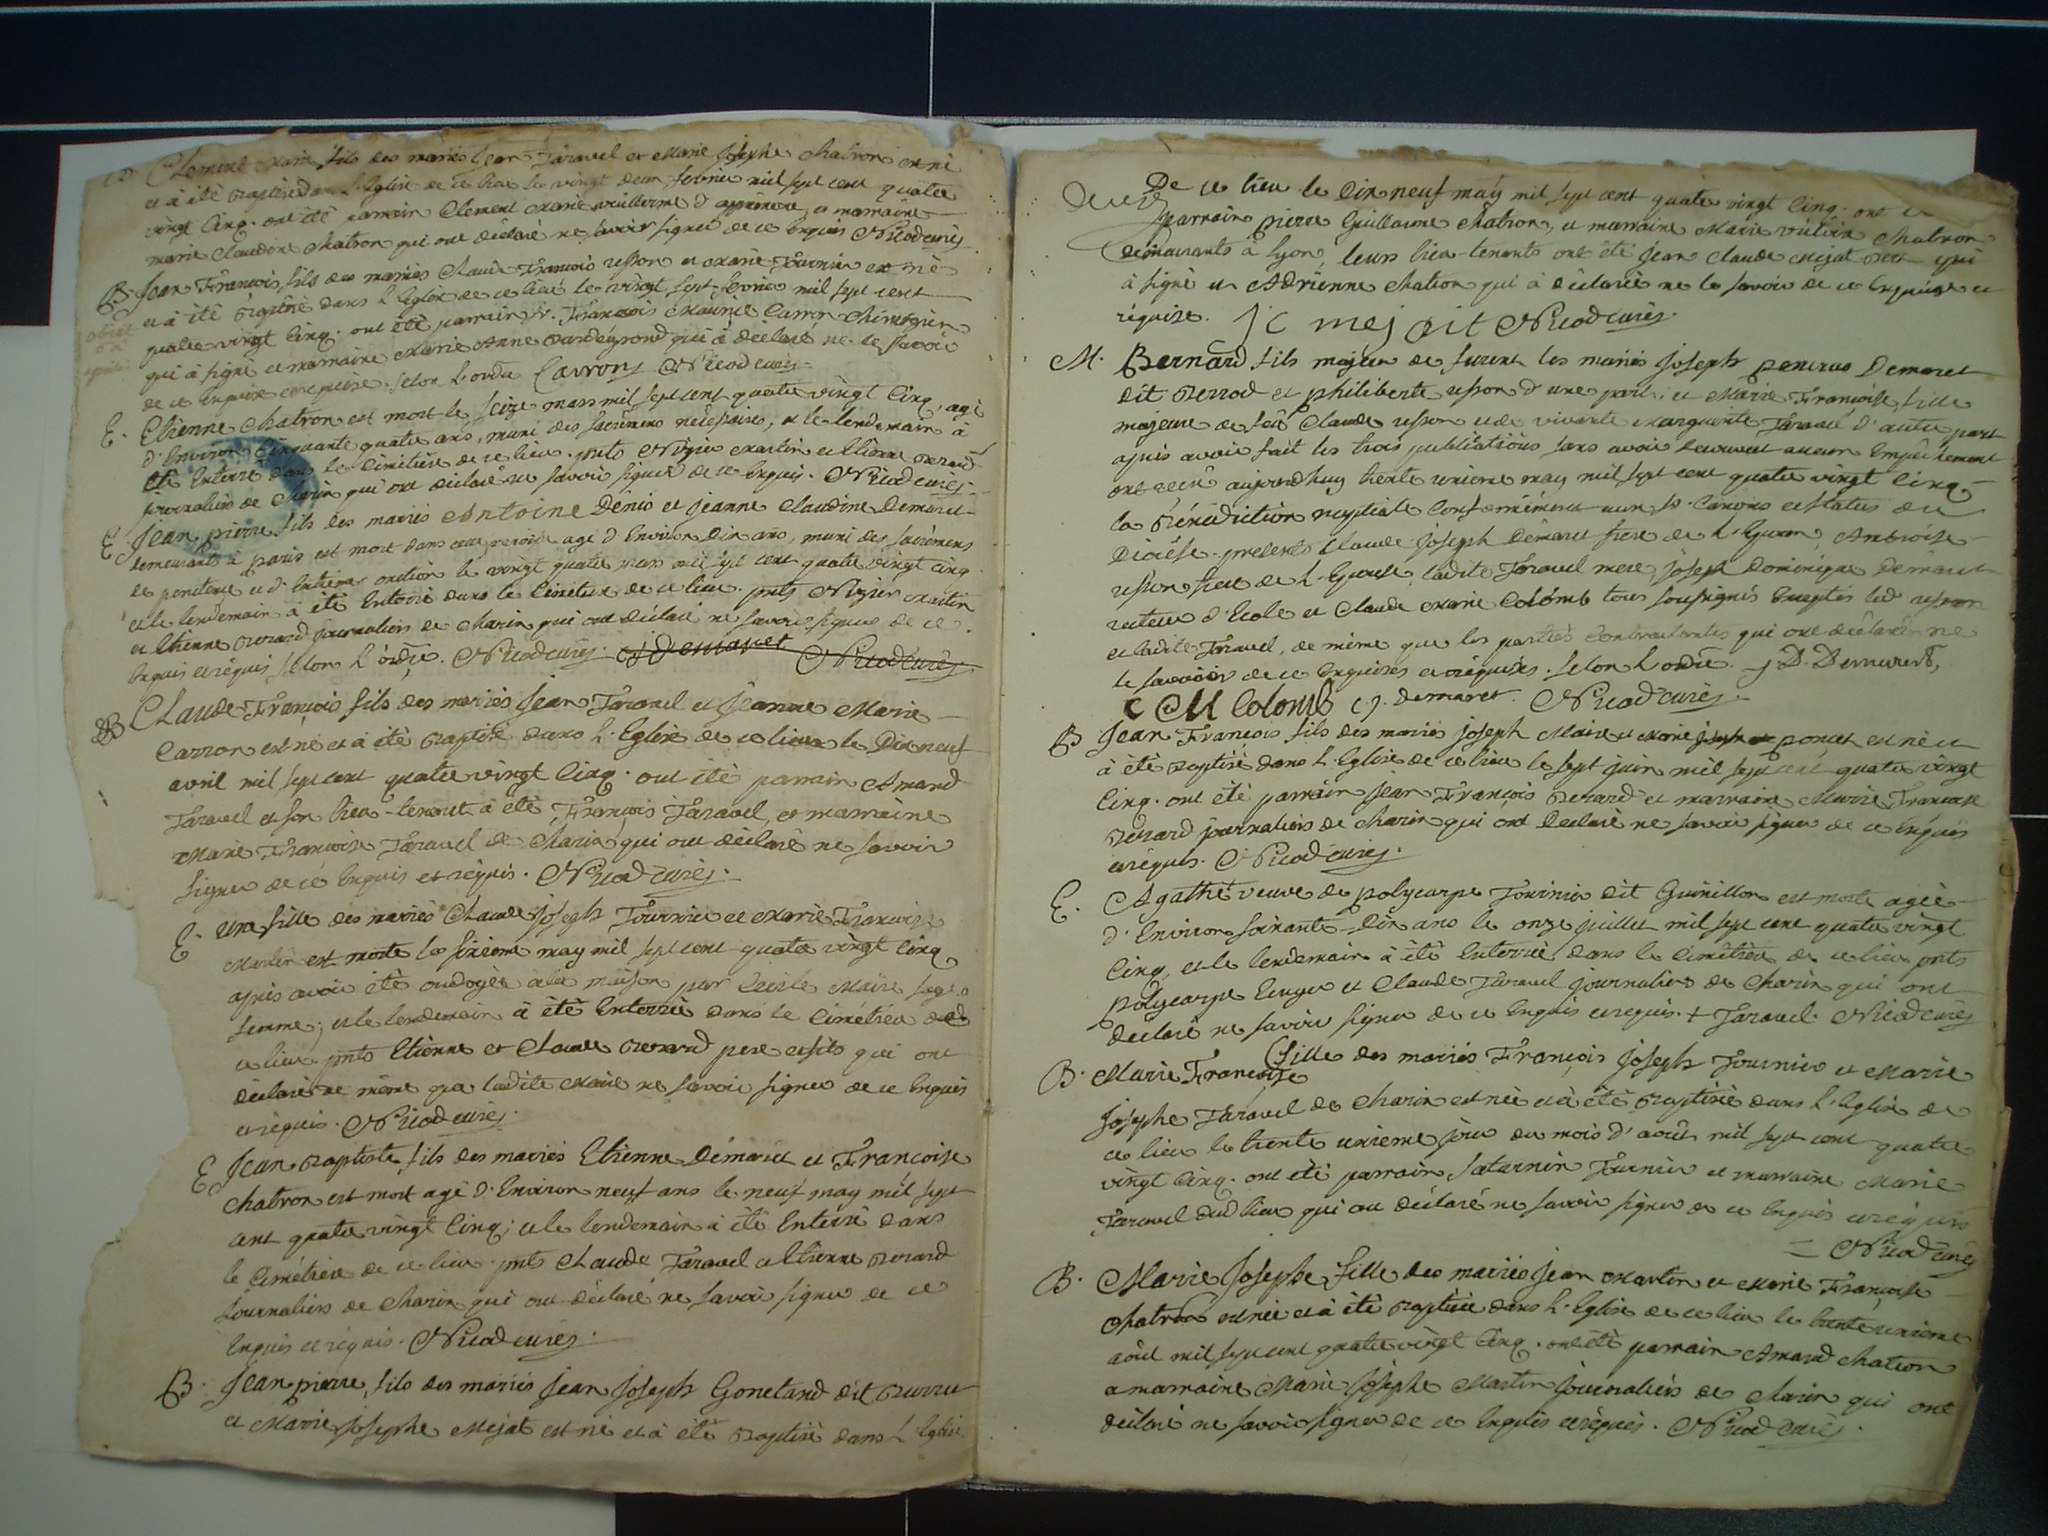 B. Clement Marie, fils des mariés Jean Faravel et Marie Josephe Chatron est né
et à été Baptisé dans l'Eglise de ce lieu le vingt deux fevrier mil sept cent quatre
vingt cinq. ont été parrain Clement Marie et marraine
marie Claudine Chatron qui ont declaré ne savoir signer de ce Enquis Nicod curé
B. Jean François, fils des mariés Claude François resson et Marie Fournier est né
et à été Baptisé dans l'Eglise de ce lieu le vingt sept fevrier mil sept cent
quatre vingt cinq. ont été parrain Sr. François Maurice Carron Chirurgien
qui à signé et marraine Marie Anne qui à déclaré ne le savoir
de ce Enquise et requise. selon l'ordre Carron Nicod curé
E. Etienne Chatron est mort le seize mars mil sept cent quatre vingt Cinq, agé
d'Environ Cinquante quatre ans, muni des sacremens nécéssaires, et le lendemain à
été Enterré dans le Cimetière de ce lieu. pnts Nizier Martin et Etienne Berard
journaliers de Charin qui ont déclaré ne savoir signer de ce Enquis. Nicod curé
E Jean pierre, fils des mariés Antoine Dénis et Jeanne Claudine Demaret
demeurants à paris est mort dans cette paroisse agé d'Environ Dix ans, muni des sacrémens
de penitence et d'Extrême onction le vingt quatre mars mil sept cent quatre vingt cinq
et le lendemain à été Enterré dans le Cimétière de ce lieu. pnts Nizier Martin
et Etienne Berard journaliers de Charin qui ont déclaré ne savoir signer de ce
Enquis et réquis, selon l'ordre. Nicod curé. J Demaret Nicod curé
B Claude François fils des mariés Jean Faravel et Jeanne Marie
Carron est né et à été Baptisé dans l'Eglise de ce lieu le Dixneuf
avril mil sept cent quatre vingt Cinq. ont été parrain Amand
Faravel et son lieu-tenant à été François Faravel, et marraine
Marie Françoise Faravel de Charin qui ont déclaré ne savoir
signer de ce Enquis et réquis. Nicod curé.
E. une fille des mariés Claude Joseph Fournier et Marie Françoise
Martin est morte le sixieme may mil sept cent quatre vingt Cinq
après avoir été ondoyée à la maison par Maire sage
femme; et le lendemain à été Enterrée dans le Cimétière de
ce lieu pnts Etienne et Claude Berard pere et fils qui ont
déclaré de même que ladite Maire ne savoir signer de ce Enquis
et réquis. Nicod curé.
E Jean Baptiste, fils des mariés Etienne Démaret et Francoise
Chatron est mort agé d'Environ neuf ans le neuf may mil sept
cent quatre vingt Cinq; et le lendemain à été Enterré dans
le Cimétière de ce lieu pnts Claude Faravel et Etienne Berard
journaliers de Charin qui ont déclaré ne savoir signer de ce
Enquis et réquis. Nicod curé.
B. Jean pierre, fils des mariés Jean Joseph Gonetand dit
et Marie Josephe Mejat est né et à été Baptisé dans l'Eglise
De ce lieu le Dixneuf may mil sept cent quatre vingt Cinq. ont
parrain pierre Guillaume Chatron, et marraine Marie Chatron
demeurants à Lyon, leurs lieu-tenants ont été Jean Claude Mejat qui
à signé et Adrienne Chatron qui à déclaré ne le savoir de ce Enquise et
réquise. J C mejat Nicod curé.
M. Bernard fils majeur de furent les mariés Joseph Demaret
dit Perrod et philiberte resson d'une part; et Marie Françoise, fille
majeure de feu Claude resson et de vivante Marguerite Faravel d'autre part
après avoir fait les trois publications sans avoir découvert aucun Empêchement
ont reçu aujourdhuy trente unieme may mil sept cent quatre vingt Cinq
la Bénédiction nuptiale Conformément aux Sts. Canons et statuts du
Diocèse. présents Claude Joseph Démaret frere de l'Epoux, Ambroise
resson frere de l'Epouse, ladite Faravel mere, Joseph Dominique Démaret
recteur d'Ecole et Claude Marie Colomb tous soussignés Exceptés led resson
et ladite Faravel, de même que les parties Contractantes qui ont déclaré ne
le savoir de ce Enquises et réquises. selon l'ordre. J D. Demaret,
C M Colomb C J. demaret. Nicod curé.
B Jean François fils des mariés Joseph Maire et Marie Joseph poncet est né et
à été Baptisé dans l'Eglise de ce lieu le sept juin mil sept cent quatre vingt
Cinq. ont été parrain Jean François Berard et marraine Marie Françoise
Berard journaliers de Charin qui ont Declaré ne savoir signer de ce Enquis
et réquis. Nicod curé.
E. Agathe veuve de polycarpe Fournier dit Guinillon est morte agée
d'Environ soixante-Dix ans le onze juillet mil sept cent quatre vingt
Cinq, et le lendemain à été Enterrée dans le Cimétière de ce lieu pnts
polycarpe et Claude Faravel journaliers de Charin qui ont
déclaré ne savoir signer de ce Enquis et requis. + Faravel. Nicod curé
B. Marie Françoise fille des mariés François Joseph Fournier et Marie
Josephe Faravel de Charin est née et à été Baptisée dans l'Eglise de
ce lieu le trente unieme jour du mois d'août mil sept cent quatre
vingt Cinq. ont été parrain Saturnin Fournier et marraine Marie
Faravel dud lieu qui ont déclaré ne savoir signer de ce Enquis et réquis
= Nicod curé
B. Marie Josephe, fille des mariés Jean Martin et Marie Françoise
Chatron est née et à été Baptisée dans l'Eglise de ce lieu le trente unieme
août mil sept cent quatre vingt Cinq. ont été parrain Amand Chatron
et marraine Marie Josephe Martin journaliers de Charin qui ont
déclaré ne savoir signer de ce Enquis et réquis. Nicod curé.